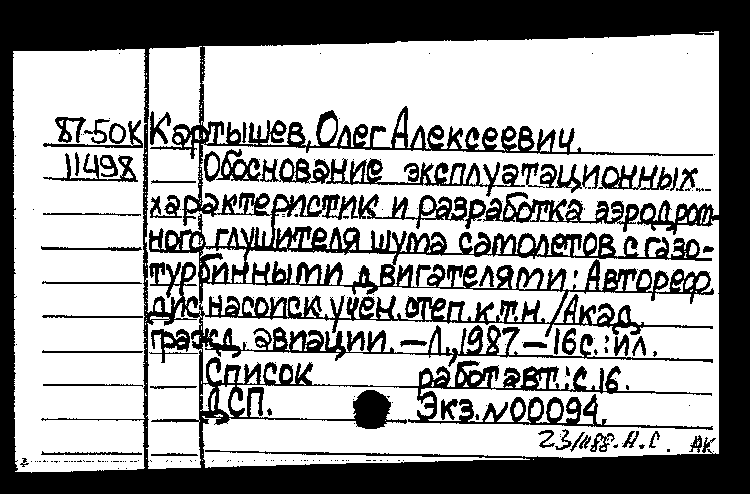 87-50К Картышев, Олег Алексеевич.
11498 Обоснование эксплуатационных
характеристик и разработка аэродром-
ного глушителя шума самолетов с газо-
турбинными двигателями: Автореф.
дис. на соиск. учен. степ. к.т.н. /Акад.
гражд. авиации. — Л., 1987. — 16 с.: ил.
Список работ авт.: с. 16.
ДСП. Экз. N00094.
АК